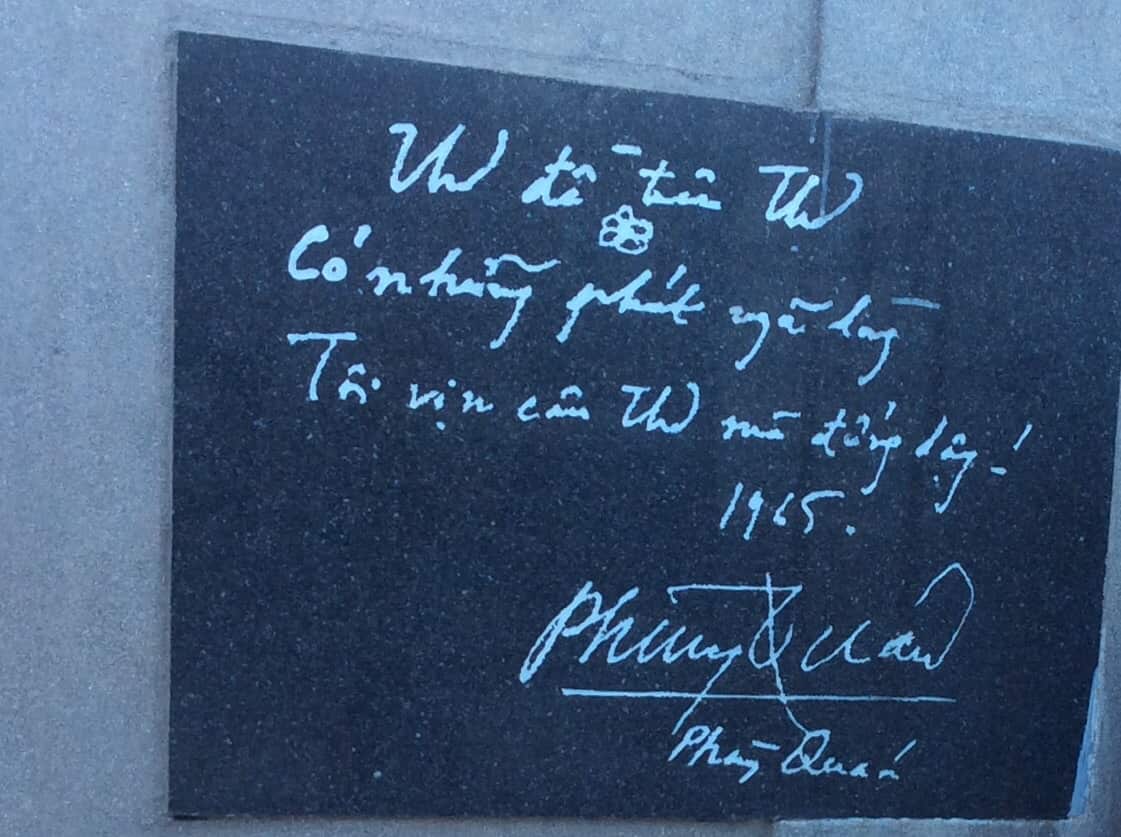 Thơ đề trên Thơ
Có những phút ngã lòng
Tôi vịn câu Thơ mà đứng dậy!
1965.
Phùng Quán
Phùng Quán